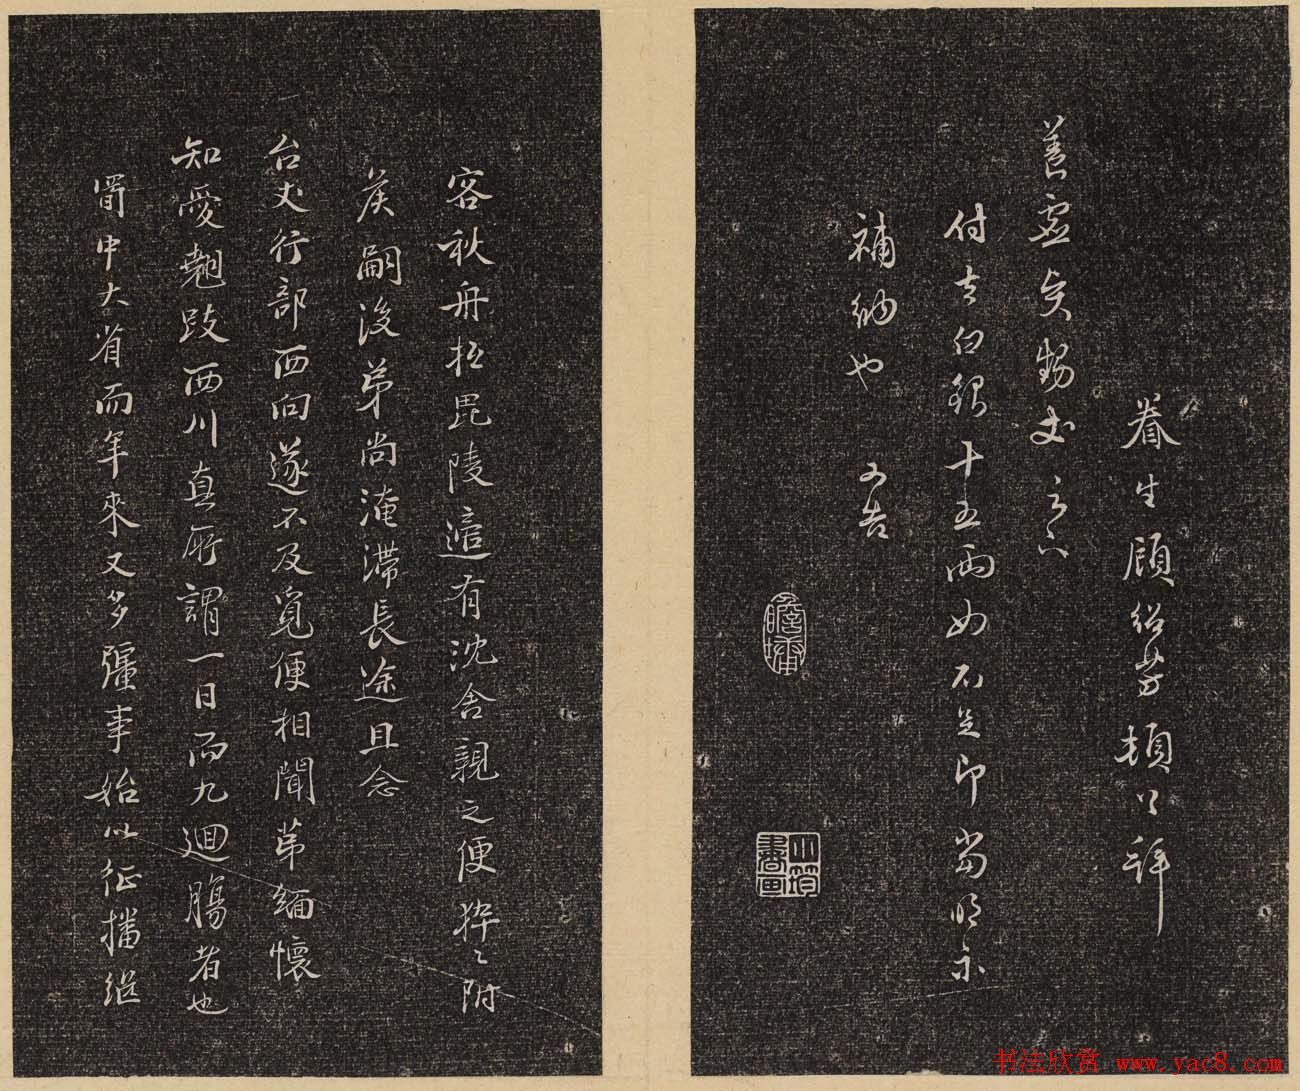 眷生顧紹芳頓首拜
善
付去白銀十五兩如不足即當明示
補納也 又告
客秋舟抵毘陵適有沈舍親之便猝猝附
候嗣後弟尚淹滯長途且念
台丈行部西向遂不及覓便相聞弟緬懷
知愛翹跂西川真所謂一日而九迴腸者也
蜀中大省而年來又多疆事始以征播繼
書法欣赏 www.yac8.com